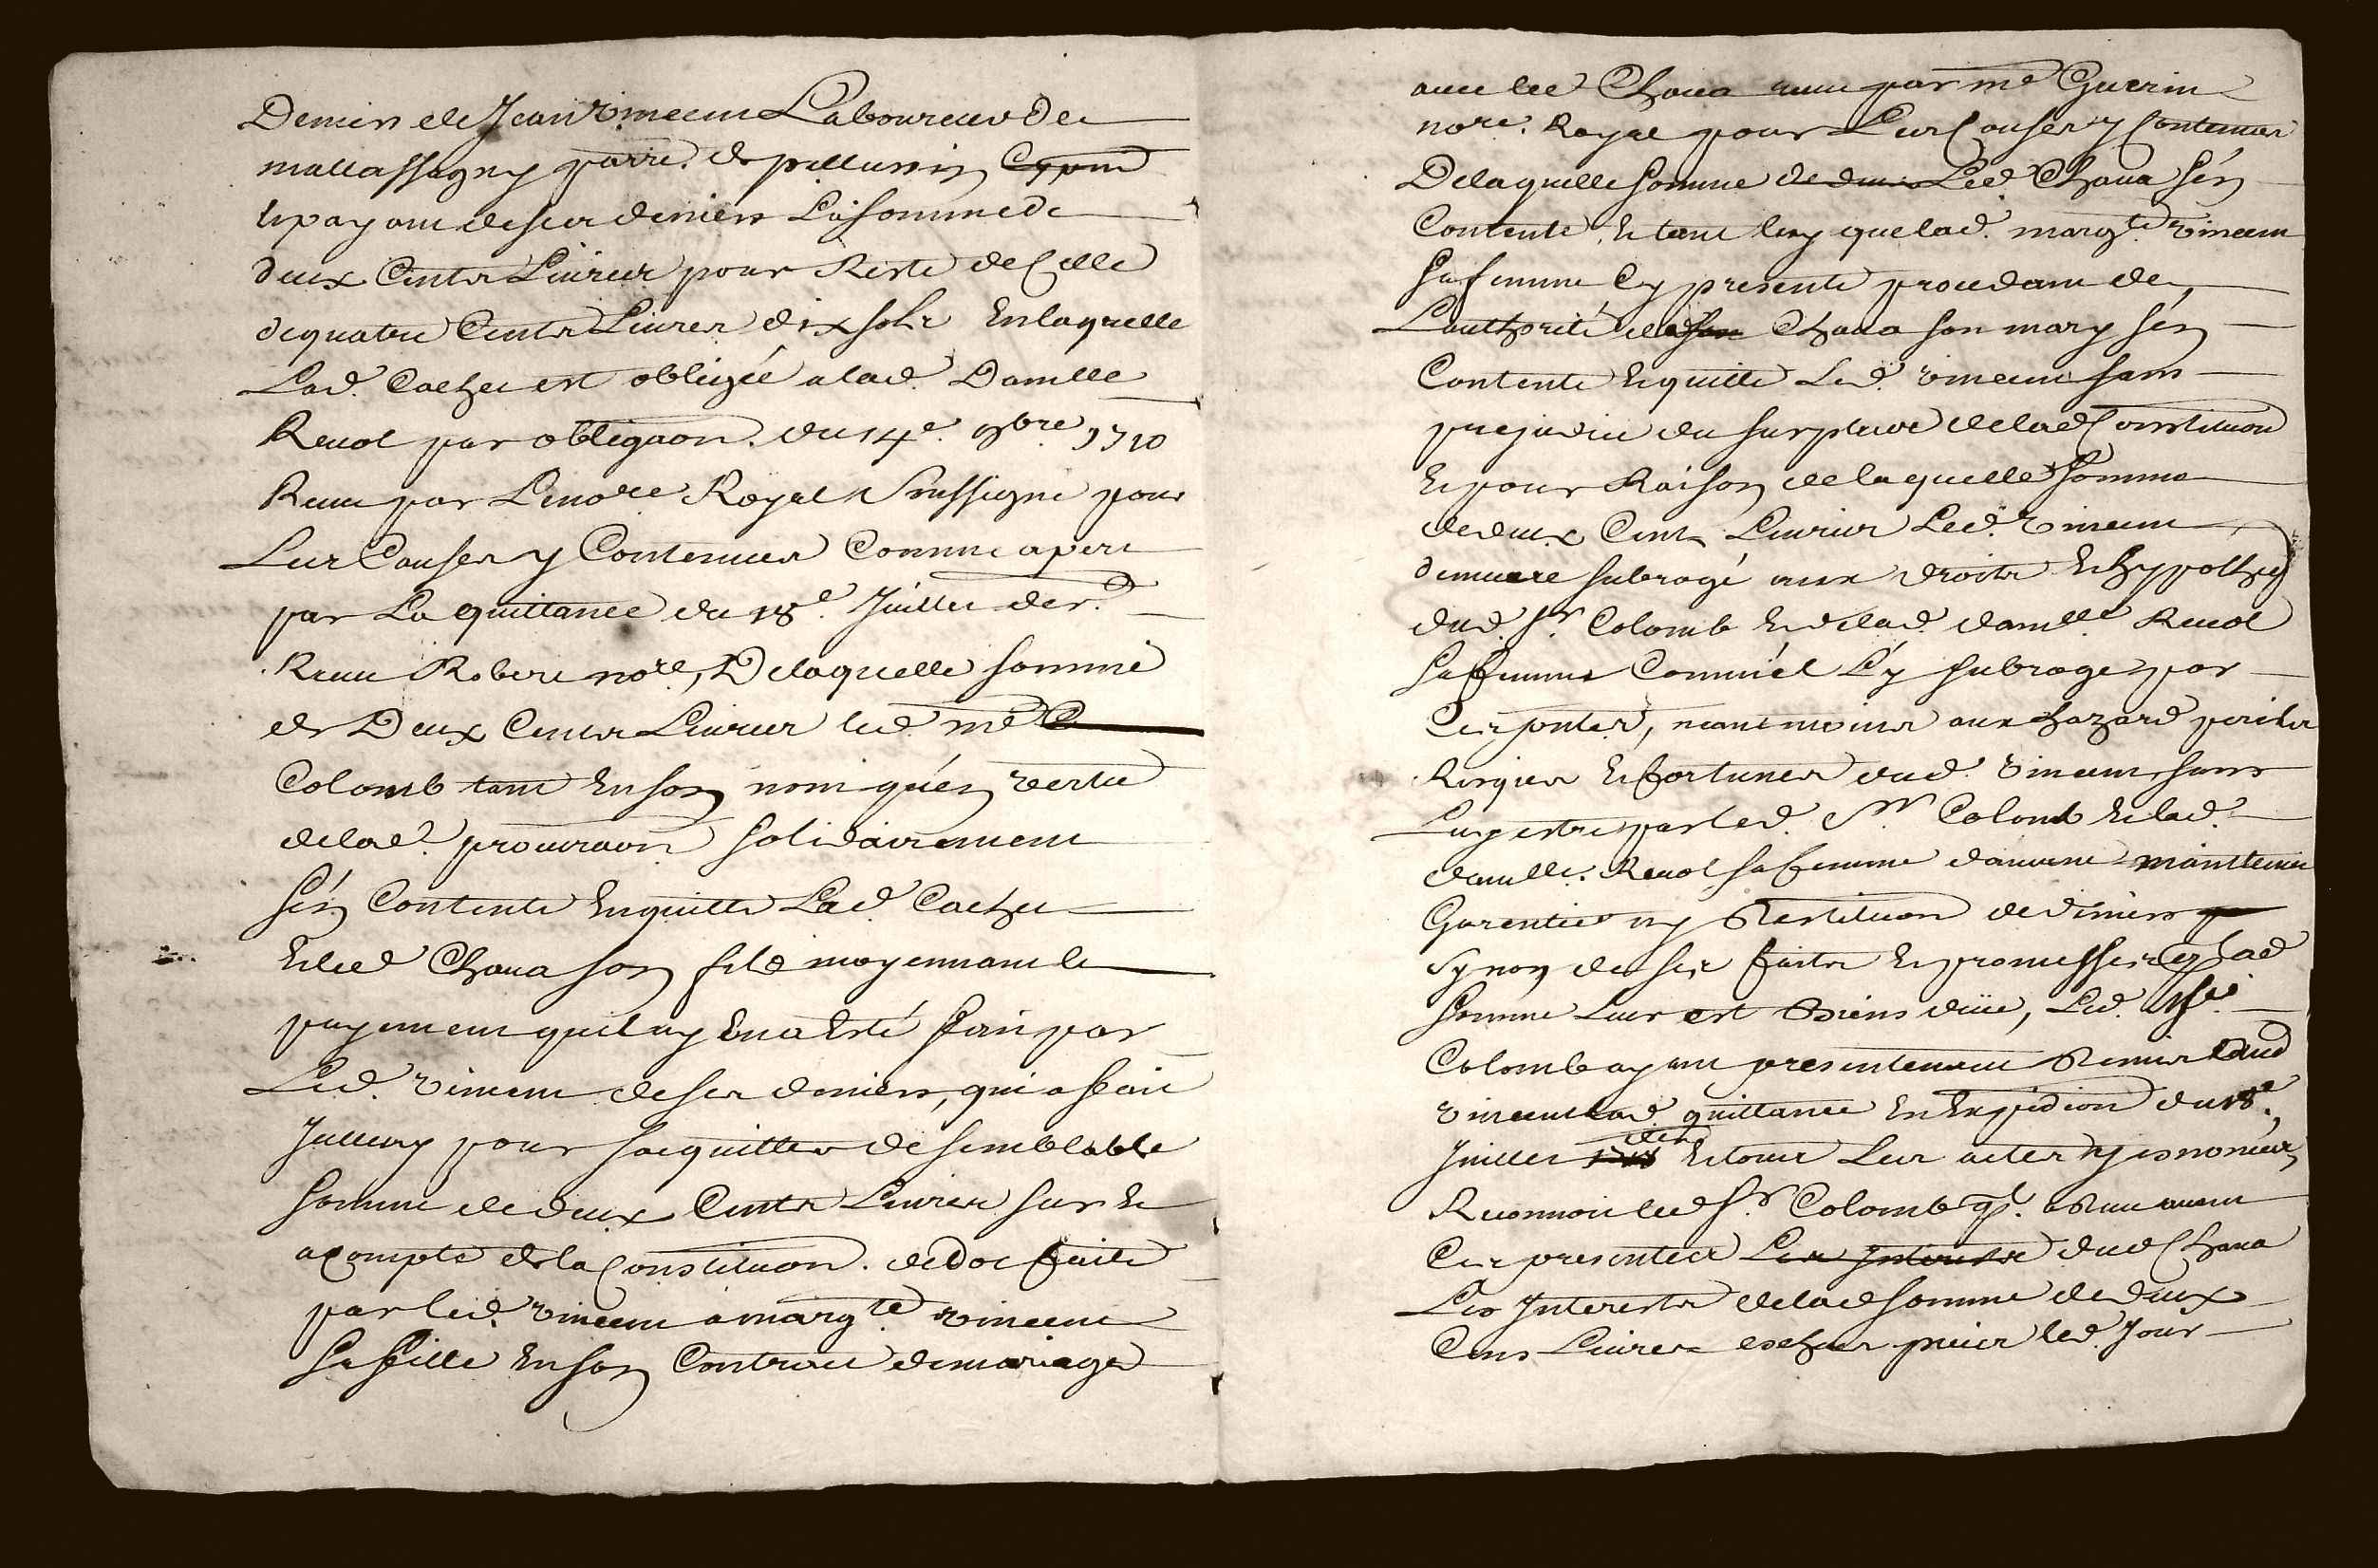 Deniers de Jean Vincent Laboureur de
mallassagny parre. de pellussin
et payant de ses deniers La somme de
deux Cents Livres pour Reste de Celle
de quatre Cents Livres dix sols En laquelle
Lad. Cachet est obligée a lad. Damlle
Revol par obligaon. du 14e. 9bre 1710
Receu par Le nore Royal Soussigné pour
Les Causes y Contenues Comme apert
par La quittance du 18e. Juillet der.
Receu Robert nore, De laquelle somme
de Deux Cents Livres led. me
Colomb tant En son nom qu'en vertu
de lad. procuraon solidairement
s'en Contente En quitte Lad. Cachet
Et led Chava son fils moyennant le
payement quil luy En a Esté fait par
Led. Vincent de ses deniers, qui a fait
Jcelluy pour sacquitter de semblable
somme de deux Cents Livres sur Et
a Compte de la Constituon. de dot faite
par led. Vincent a margte. Vincent
sa fille En son Contract de mariage
avec led Chava receu par me Guerin
nore. Royal pour Les Causes y Contenues
De laquelle somme Led. Chava s'en
Contente, Et tant luy que lad. margte. Vincent
sa femme Cy presente procedant de
L'authorité de Chava son mary s'en
Contente Et quitte Led. Vincent sans
prejudice du surplus de lad Constituon
Et pour Raison de laquelle somme
de deux Cents Livres Led. Vincent
demeure subrogé aux droits Et hypotheq
dud. Sr. Colomb Et de lad. damlle Revol
sa femme Comme il L'y subroge par
Ces pntes, neantmoins aux hazard perils
Risques Et fortunes dud. Vincent sans
Luy estre par led. Sr. Colomb Et lad.
damlle. Revol sa femme d'aucune maintenue
Garentie ny Restituon de deniers
Synon de ses faits Et promesses Et q lad
somme Leur est Biens düe, Led. Sr.
Colomb ayant presentement Remis aud
Vincent lad. quittance En Expedion du 18e.
Juillet der Et tous Les actes y enoncéz,
Reconnoit led Sr. Colomb ql. a Receu avant
Ces presentes Les Interests dud Chava
Les Interests de lad somme de deux
Cens Livres escheus jusques led. Jour